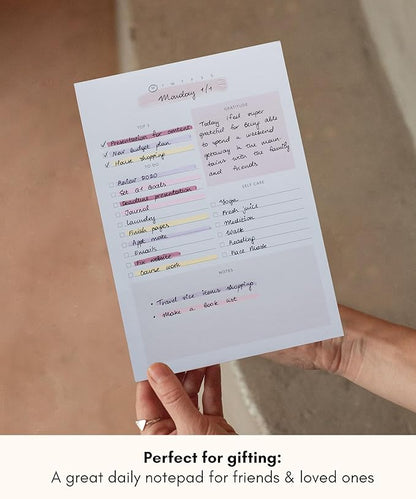 M T W T F S S
Monday 1/1
TOP 3
Presentation for content
New budget plan
House shopping
TO DO
Review 2020
Set Q1 Goals
Deadline presentation
Journal
Laundry
Finish pages
Appt. mate
Emails
Fix website
Course work
GRATITUDE
Today I feel super
grateful for being able
to spend a weekend
getaway in the moun-
tains with the family
and friends
SELF CARE
Yoga
Fresh juice
Meditation
Walk
Reading
Face Mask
NOTES
• Travel size items shopping
• Make a book list
Perfect for gifting:
A great daily notepad for friends & loved ones